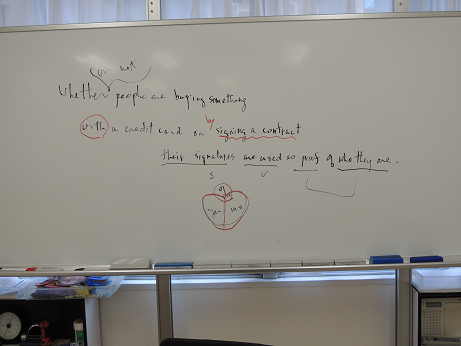 (or not)
Whether people are buying something
with a credit card or by signing a contract
their signatures are used as proof of who they are.
S V
of